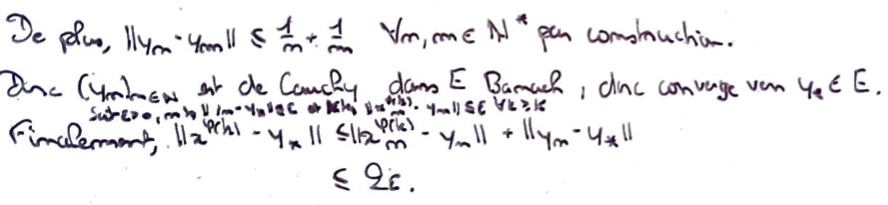 De plus, ||yₙ - yₘ|| ≤ 1/n + 1/m ∀n, m ∈ N* par construction.
Donc (yₙ)ₙ∈N est de Cauchy dans E Banach, donc converge vers y* ∈ E.
Soit ε>0, yₙ|| ≤ ε ∀k ≥ K
Finalement, ||x^φ(k) - y*|| ≤ ||x^φ(k) - yₙ|| + ||yₙ - y*||
≤ 2ε.